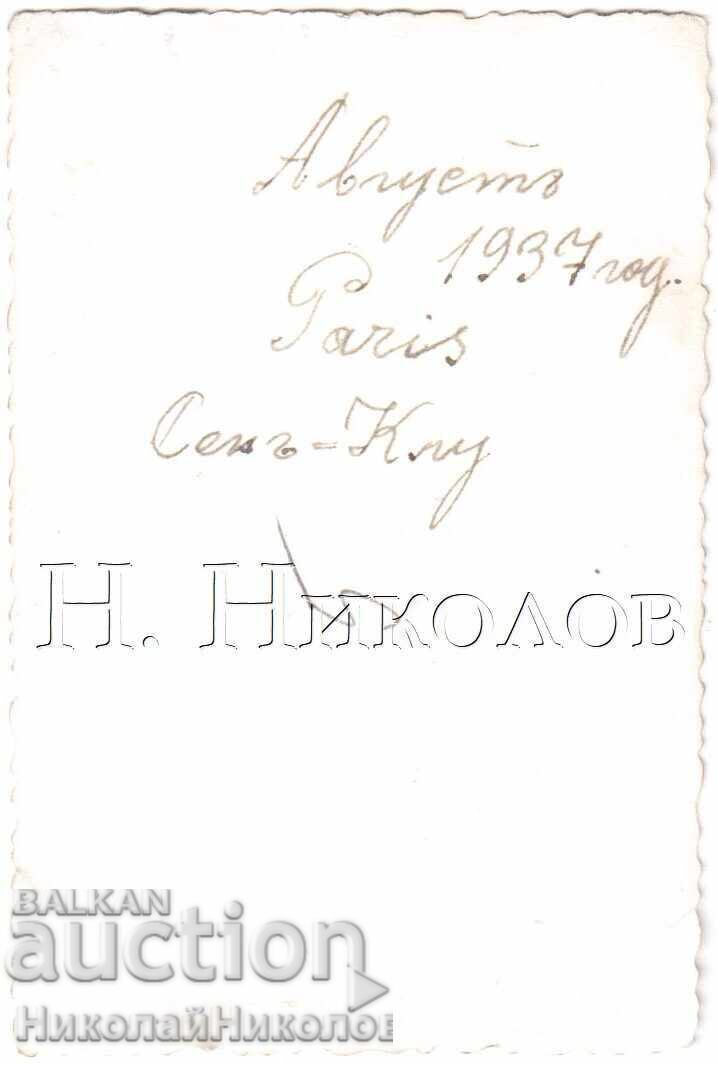 Августъ
1937 год.
Paris
Сенъ=Клу
Н. Николов
BALKAN
auction
НиколайНиколов